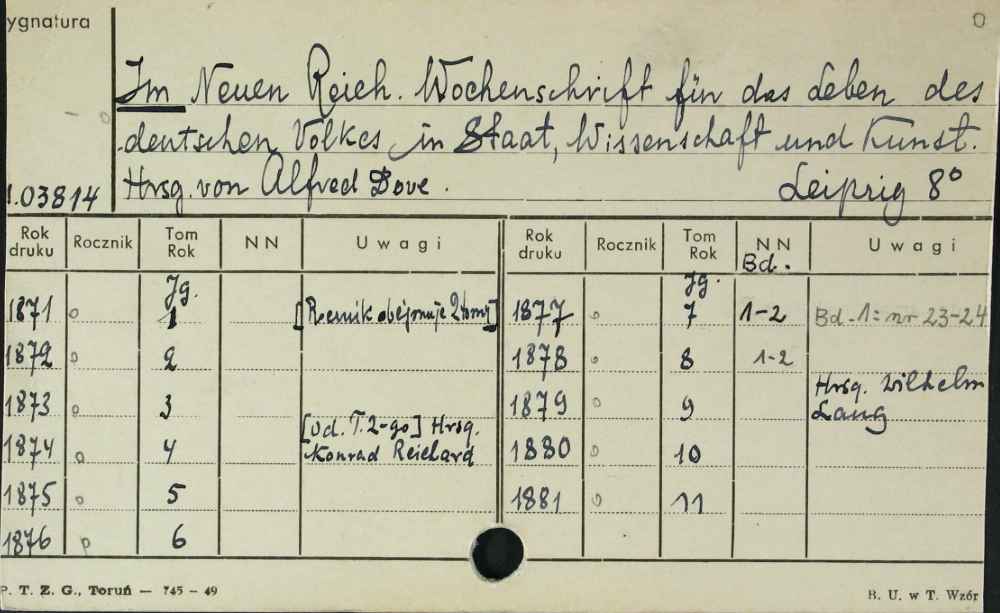 ygnatura
Im Neuen Reich. Wochenschrift für das Leben des
deutschen Volkes in Staat, Wissenschaft und Kunst.
Hrsg. von Alfred Dove. Leipzig 8°
.03814
Rok druku Rocznik Tom Rok NN Uwagi Rok druku Rocznik Tom Rok NN Bd. Uwagi
Jg. Jg.
1871 o 1 [Rocznik obejmuje 2 tomy] 1877 o 7 1-2 Bd. 1: nr 23-24
1872 o 2 1878 o 8 1-2
1873 o 3 1879 o 9 Hrsg. Wilhelm Lang
1874 o 4 [Od. T. 2-go] Hrsg. Konrad Reichard 1880 o 10
1875 o 5 1881 o 11
1876 o 6
P. T. Z. G., Toruń — 745 – 49 B. U. w T. Wzór